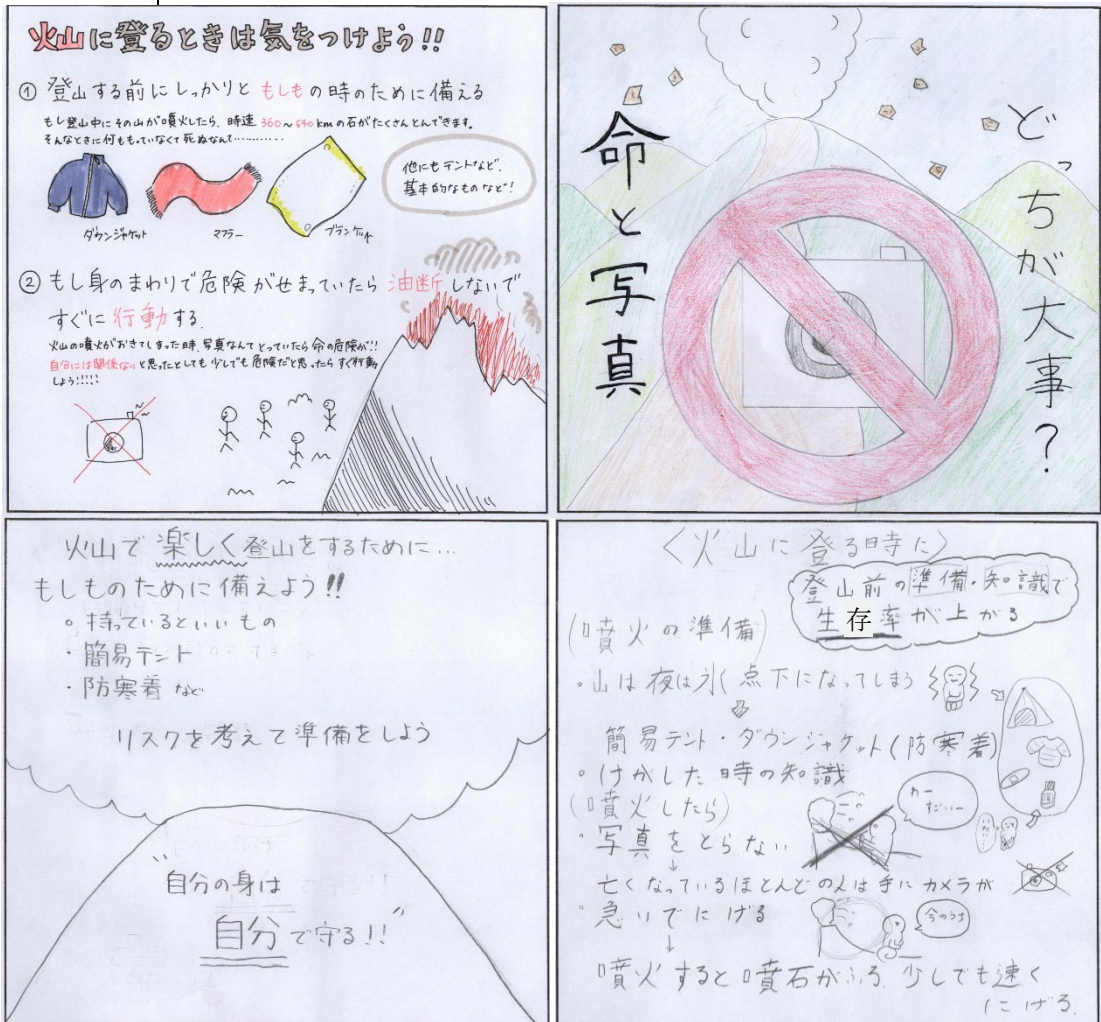 火山に登るときは気をつけよう!!
① 登山する前にしっかりともしもの時のために備える
もし登山中にその山が噴火したら、時速360~540kmの石がたくさんとんできます。
そんなときに何ももっていなくて死ぬなんて…………
ダウンジャケット
マフラー
ブランケット
他にもテントなど、
基本的なものなど!
② もし身のまわりで危険がせまっていたら油断しないで
すぐに行動する。
火山の噴火がおきてしまった時、写真なんてとっていたら命の危険が!!
自分には関係ないと思ったとしても少しでも危険だと思ったらすぐ行動
しよう!!!!!
どっちが大事?
命と写真
火山で楽しく登山をするために…
もしものために備えよう!!
○ 持っているといいもの
・簡易テント
・防寒着 など
リスクを考えて準備をしよう
"自分の身は
自分で守る!!"
〈火山に登る時に〉
登山前の準備・知識で
生存率が上がる
(噴火の準備)
・山は夜は氷点下になってしまう
簡易テント・ダウンジャケット(防寒着)
・けがした時の知識
(噴火したら)
・写真をとらない
わー
すごいー
亡くなっているほとんどの人は手にカメラが
・急いでにげる
今のうち
噴火すると噴石がふる。少しでも速く
にげる。